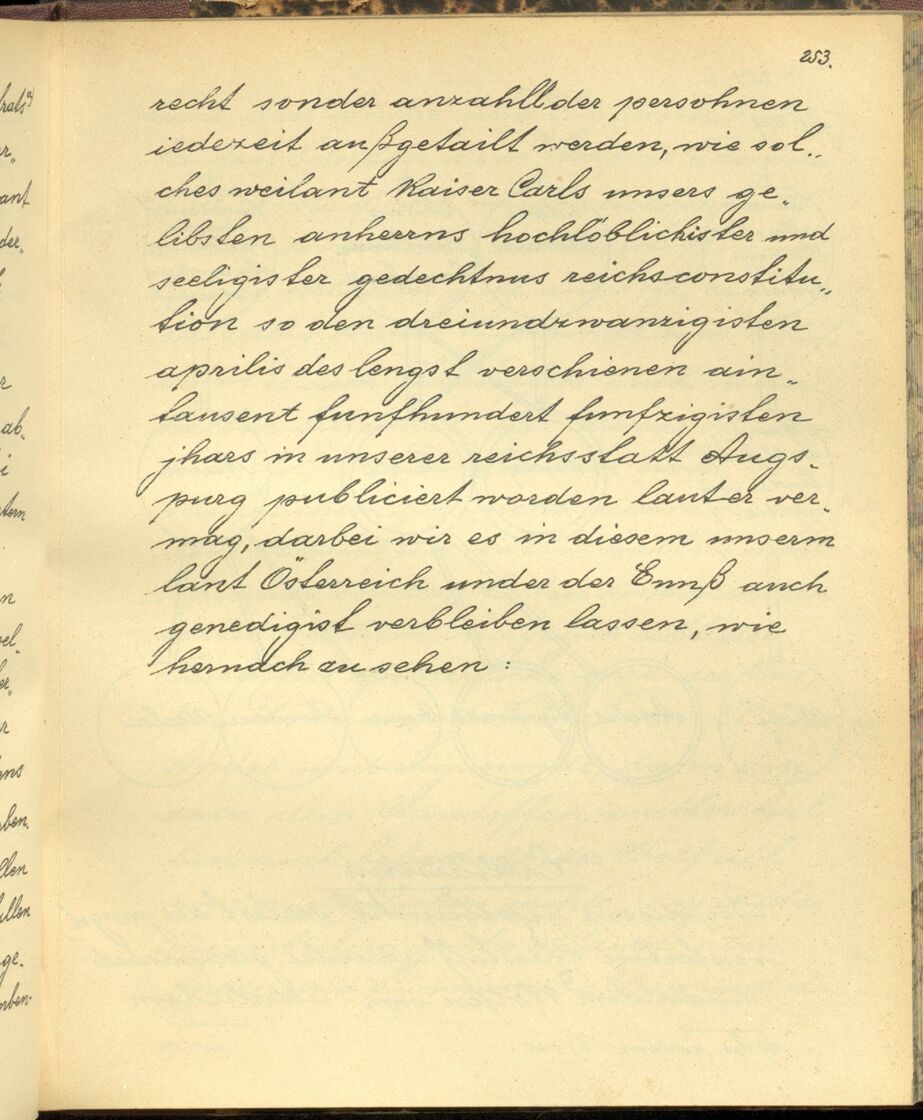 253.
recht sonder anzahll der persohnen
iedezeit außgetailt werden, wie sol„
ches weilant Kaiser Carls unsers ge„
libsten anherrns hochlöblichister und
seeligister gedechtnus reichsconstitu„
tion so den dreiundzwanzigisten
aprilis des lengst verschienen ain„
tausent funfhundert funfzigisten
jhars in unserer reichsstatt Augs„
purg publiciert worden lauter ver„
mag, darbei wir es in diesem unserm
lant Österreich under der Ennß auch
genedigist verbleiben lassen, wie
hernach zu sehen :